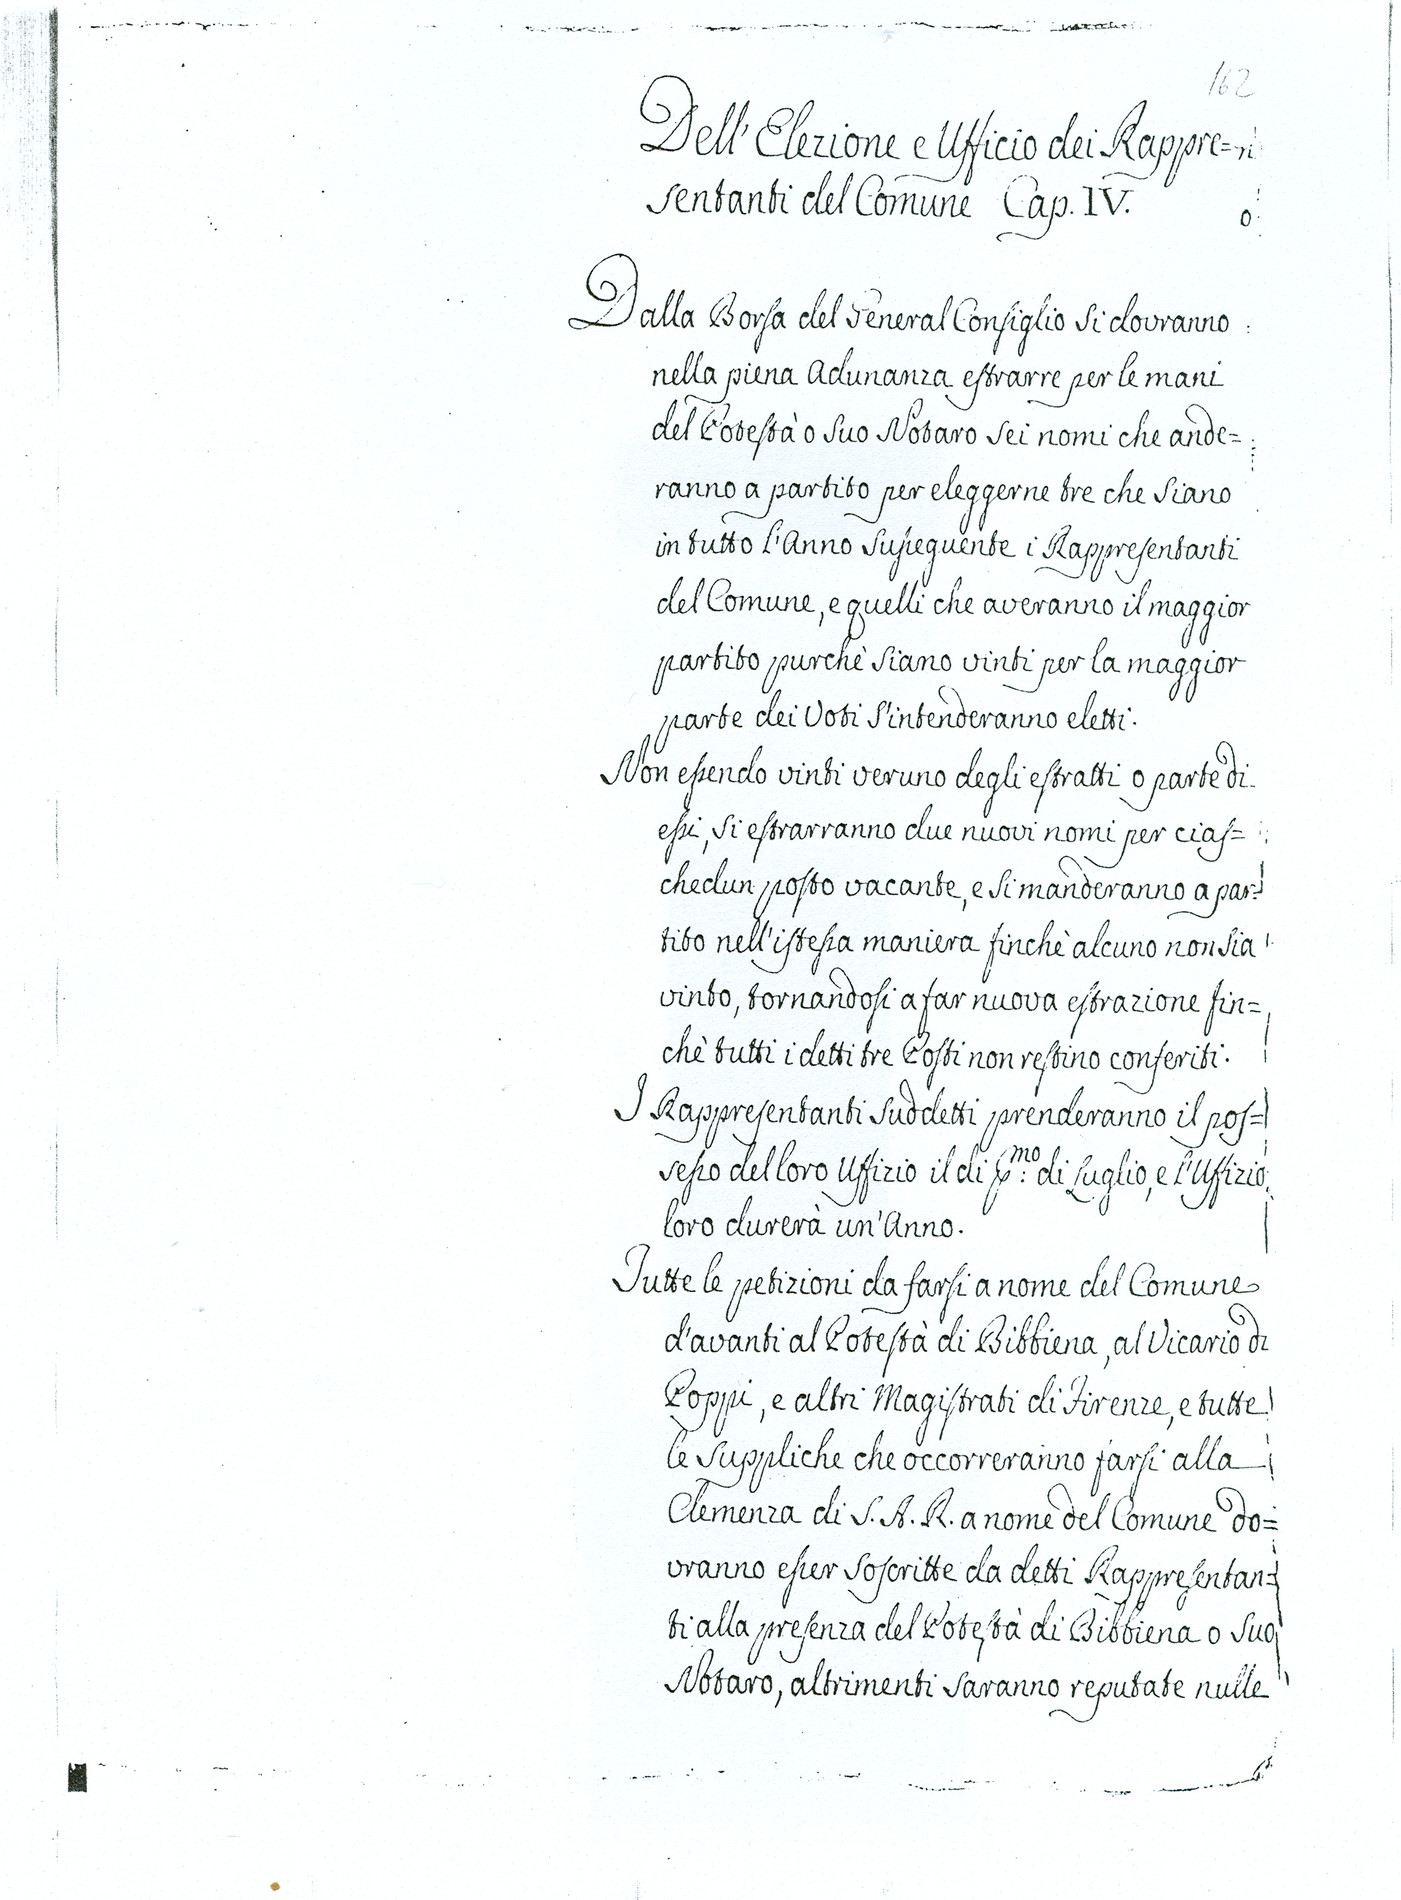 162
Dell'Elezione e Ufficio dei Rappre=
sentanti del Comune Cap. IV.
Dalla Borsa del General Consiglio si dovranno
nella piena Adunanza estrarre per le mani
del Potestà o suo Notaro sei nomi che ande=
ranno a partito per eleggerne tre che siano
in tutto l'Anno sussequente i Rappresentanti
del Comune, e quelli che averanno il maggior
partito purchè siano vinti per la maggior
parte dei Voti s'intenderanno eletti.
Non essendo vinti veruno degli estratti o parte di
essi, si estrarranno due nuovi nomi per cias=
chedun posto vacante, e si manderanno a par=
tito nell'istessa maniera finchè alcuno non sia
vinto, tornandosi a far nuova estrazione fin=
chè tutti i detti tre Posti non restino conferiti.
I Rappresentanti suddetti prenderanno il pos=
sesso del loro Uffizio il di p.mo di Luglio, e l'Uffizio
loro durerà un'Anno.
Tutte le petizioni da farsi a nome del Comune
d'avanti al Potestà di Bibbiena, al Vicario di
Poppi, e altri Magistrati di Firenze, e tutte
le suppliche che occorreranno farsi alla
Clemenza di S. A. R. a nome del Comune do=
vranno esser soscritte da detti Rappresentan=
ti alla presenza del Potestà di Bibbiena o suo
Notaro, altrimenti saranno reputate nulle